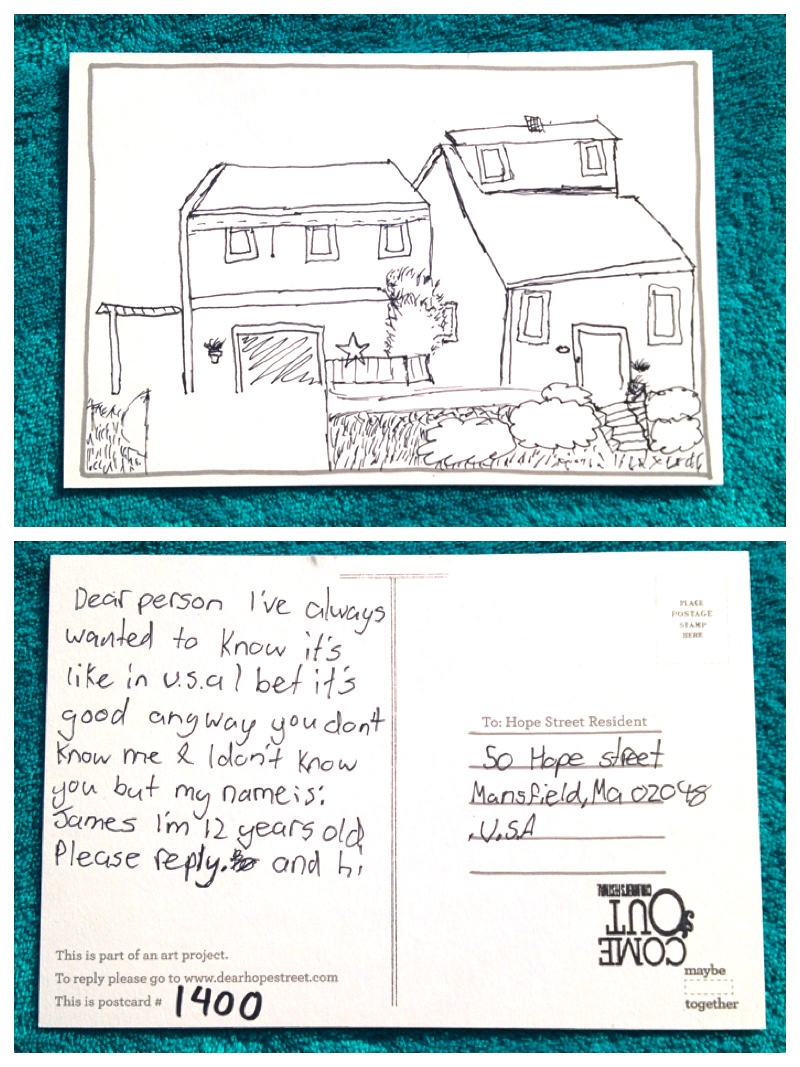 Dear person I've always
wanted to know it's
like in u.s.a I bet it's
good anyway you dont
know me & I don't know
you but my name is:
James I'm 12 years old
Please reply. and hi
This is part of an art project.
To reply please go to www.dearhopestreet.com
This is postcard # 1400
PLACE
POSTAGE
STAMP
HERE
To: Hope Street Resident
50 Hope street
Mansfield, Ma 02048
.U.S.A
COME
OUT
CHILDREN'S FESTIVAL
maybe
together